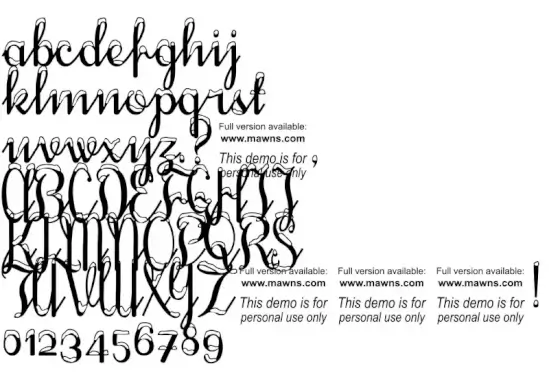 abcdefghij
klmnopqrst
uvwxyz.?
Full version available:
www.mawns.com
This demo is for
personal use only
,
ABCDEFGHIJ
KLMNOPQRS
TUVWXYZ
Full version available:
www.mawns.com
This demo is for
personal use only
Full version available:
www.mawns.com
This demo is for
personal use only
Full version available:
www.mawns.com
This demo is for
personal use only
!
0123456789